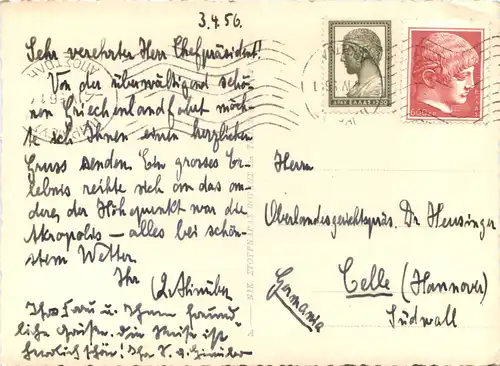 3.4.56.
Sehr verehrter Herr Chefpräsident!
Von der überwältigend schö-
nen Griechenlandfahrt möch-
te ich Ihnen einen herzlichen
Gruss senden. Ein grosses Er-
lebnis reihte sich an das an-
dere, der Höhepunkt war die
Akropolis – alles bei schön-
stem Wetter.
Ihr
Ihrer Frau u. Ihnen freund-
liche Grüße. Die Reise ist
herrlich schön! Ihre
ΕΛΛΑΣ
Herrn
Oberlandesgerichtspräs. Dr. Heusinger
Celle (Hannover)
Südwall
Germania